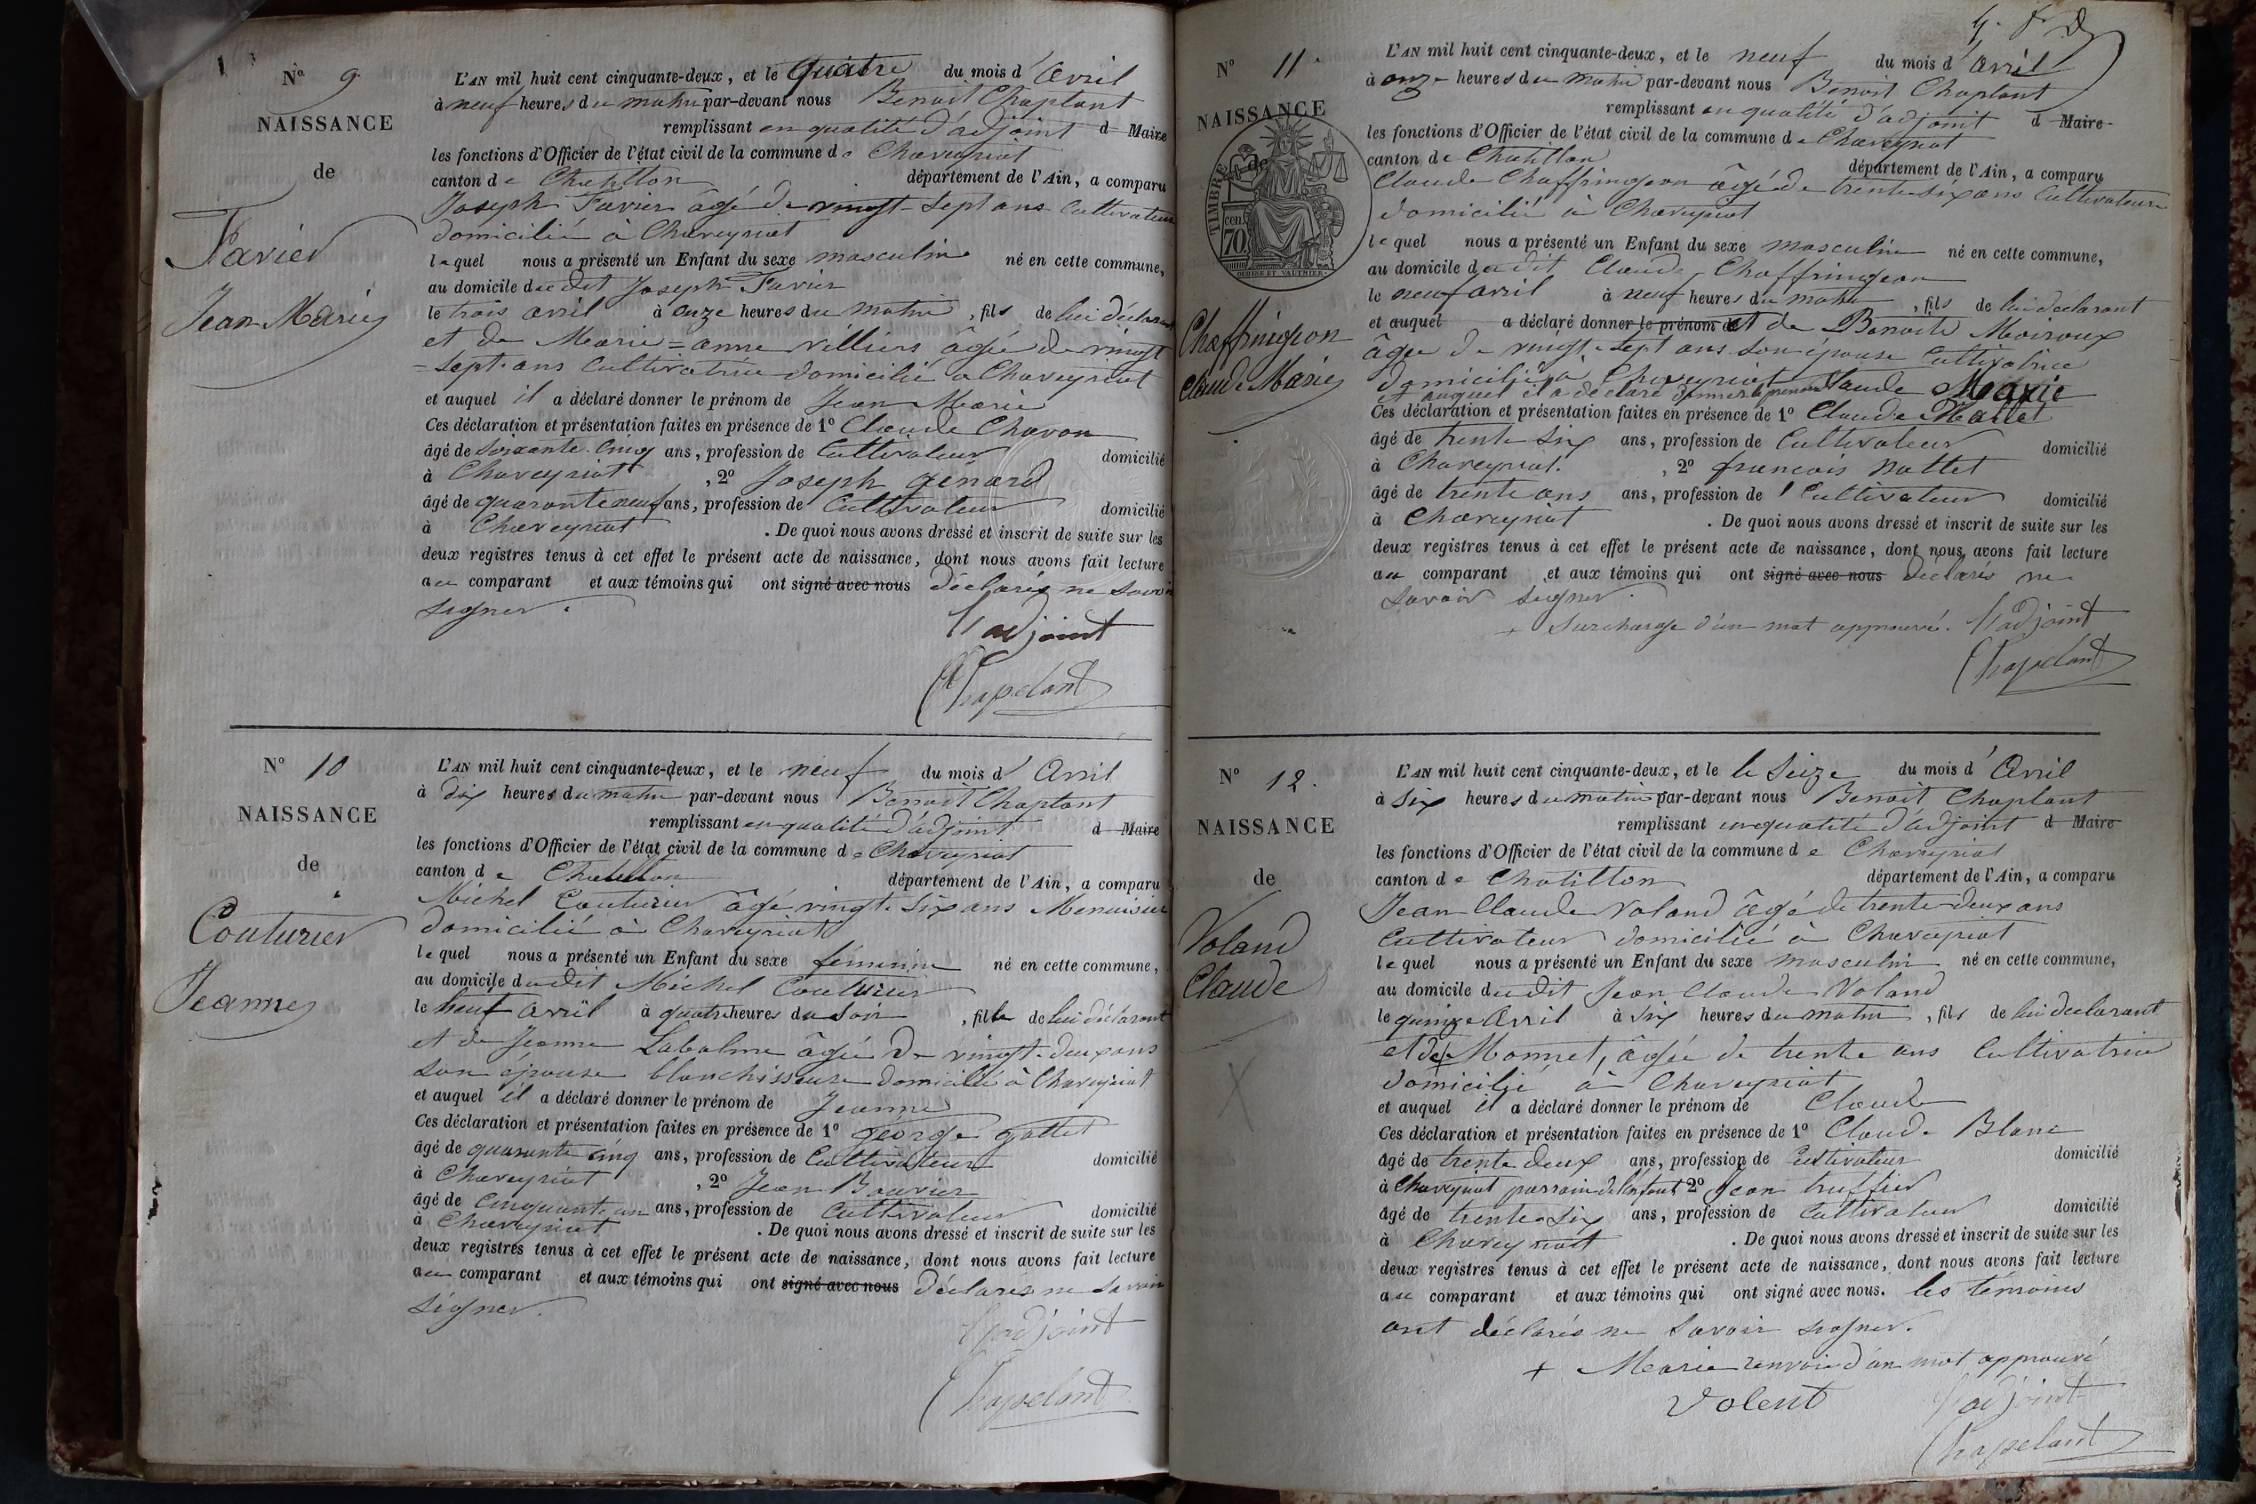 Nº 9
NAISSANCE
de
Favier
Jean Marie
L'AN mil huit cent cinquante-deux, et le quatre du mois d'Avril
à neuf heures du matin par-devant nous Benoit Chaplant
remplissant en qualité d'adjoint d Maire
les fonctions d'Officier de l'état civil de la commune de Chaveyriat
canton de Chatillon département de l'Ain, a comparu
Joseph Favier âgé de vingt-sept ans Cultivateur
domicilié à Chaveyriat
lequel nous a présenté un Enfant du sexe masculin né en cette commune,
au domicile dudit Joseph Favier
le trois avril à onze heures du matin, fils de lui déclarant
et de Marie=anne Villiers âgée de vingt
=sept ans Cultivatrice domicilié à Chaveyriat
et auquel il a déclaré donner le prénom de Jean Marie
Ces déclaration et présentation faites en présence de 1º Claude Chavon
âgé de soixante cinq ans, profession de Cultivateur domicilié
à Chaveyriat, 2º Joseph génard
âgé de quarante neuf ans, profession de Cultivateur domicilié
à Chaveyriat. De quoi nous avons dressé et inscrit de suite sur les
deux registres tenus à cet effet le présent acte de naissance, dont nous avons fait lecture
au comparant et aux témoins qui ont signé avec nous déclarés ne savoir
signer.
l'adjoint
Chapelant
Nº 10
NAISSANCE
de
Couturier
Jeanne
L'AN mil huit cent cinquante-deux, et le neuf du mois d'Avril
à dix heures du matin par-devant nous Benoit Chaplant
remplissant en qualité d'adjoint d Maire
les fonctions d'Officier de l'état civil de la commune de Chaveyriat
canton de Chatillon département de l'Ain, a comparu
Michel Couturier âgé vingt-six ans Menuisier
domicilié à Chaveyriat
lequel nous a présenté un Enfant du sexe féminin né en cette commune,
au domicile dudit Michel Couturier
le huit avril à quatre heures du soir, fille de lui déclarant
et de Jeanne Labalme âgée de vingt-deux ans
son épouse blanchisseuse domicilié à Chaveyriat
et auquel il a déclaré donner le prénom de Jeanne
Ces déclaration et présentation faites en présence de 1º géorge gottet
âgé de quarante cinq ans, profession de Cultivateur domicilié
à Chaveyriat, 2º Jean Bouvier
âgé de cinquante un ans, profession de Cultivateur domicilié
à Chaveyriat. De quoi nous avons dressé et inscrit de suite sur les
deux registres tenus à cet effet le présent acte de naissance, dont nous avons fait lecture
au comparant et aux témoins qui ont signé avec nous déclarés ne savoir
signer.
l'adjoint
Chapelant
Nº 11.
NAISSANCE
de
TIMBRE
70 cen.
Chaffringeon
Claude Marie
L'AN mil huit cent cinquante-deux, et le neuf du mois d'Avril
à onze heures du matin par-devant nous Benoit Chaplant
remplissant en qualité d'adjoint d Maire
les fonctions d'Officier de l'état civil de la commune de Chaveyriat
canton de Chatillon département de l'Ain, a comparu
Claude Chaffringeon âgé de trente-six ans Cultivateur
domicilié à Chaveyriat
lequel nous a présenté un Enfant du sexe masculin né en cette commune,
au domicile dudit Claude Chaffringeon
le neuf avril à neuf heures du matin, fils de lui déclarant
et auquel a déclaré donner le prénom de et de Benoite Moiroux
âgée de vingt-sept ans son épouse Cultivatrice
domicilié à Chaveyriat
et auquel il a déclaré donner le prénom Claude Marie
Ces déclaration et présentation faites en présence de 1º Claude Mallet
âgé de trente six ans, profession de Cultivateur domicilié
à Chaveyriat., 2º francois nallet
âgé de trente ans ans, profession de Cultivateur domicilié
à Chaveyriat. De quoi nous avons dressé et inscrit de suite sur les
deux registres tenus à cet effet le présent acte de naissance, dont nous avons fait lecture
au comparant et aux témoins qui ont signé avec nous déclarés ne
savoir signer.
+ Surcharge d'un mot approuvé. l'adjoint
Chapelant
Nº 12.
NAISSANCE
de
Voland
Claude
X
L'AN mil huit cent cinquante-deux, et le le seize du mois d'Avril
à six heures du matin par-devant nous Benoit Chaplant
remplissant en qualité d'adjoint d Maire
les fonctions d'Officier de l'état civil de la commune de Chaveyriat
canton de Chatillon département de l'Ain, a comparu
Jean Claude Voland âgé de trente-deux ans
Cultivateur domicilié à Chaveyriat
lequel nous a présenté un Enfant du sexe masculin né en cette commune,
au domicile dudit Jean Claude Voland
le quinze Avril à six heures du matin, fils de lui déclarant
et de + Monnet, âgée de trente ans Cultivatrice
domicilié à Chaveyriat
et auquel il a déclaré donner le prénom de Claude
Ces déclaration et présentation faites en présence de 1º Claude Blanc
âgé de trente deux ans, profession de Cultivateur domicilié
à Chaveyriat parrain de l'enfant 2º Jean truffier
âgé de trente-six ans, profession de Cultivateur domicilié
à Chaveyriat. De quoi nous avons dressé et inscrit de suite sur les
deux registres tenus à cet effet le présent acte de naissance, dont nous avons fait lecture
au comparant et aux témoins qui ont signé avec nous. les témoins
ont déclarés ne savoir signer.
+ Marie renvoi d'un mot approuvé
Volent l'adjoint
Chapelant